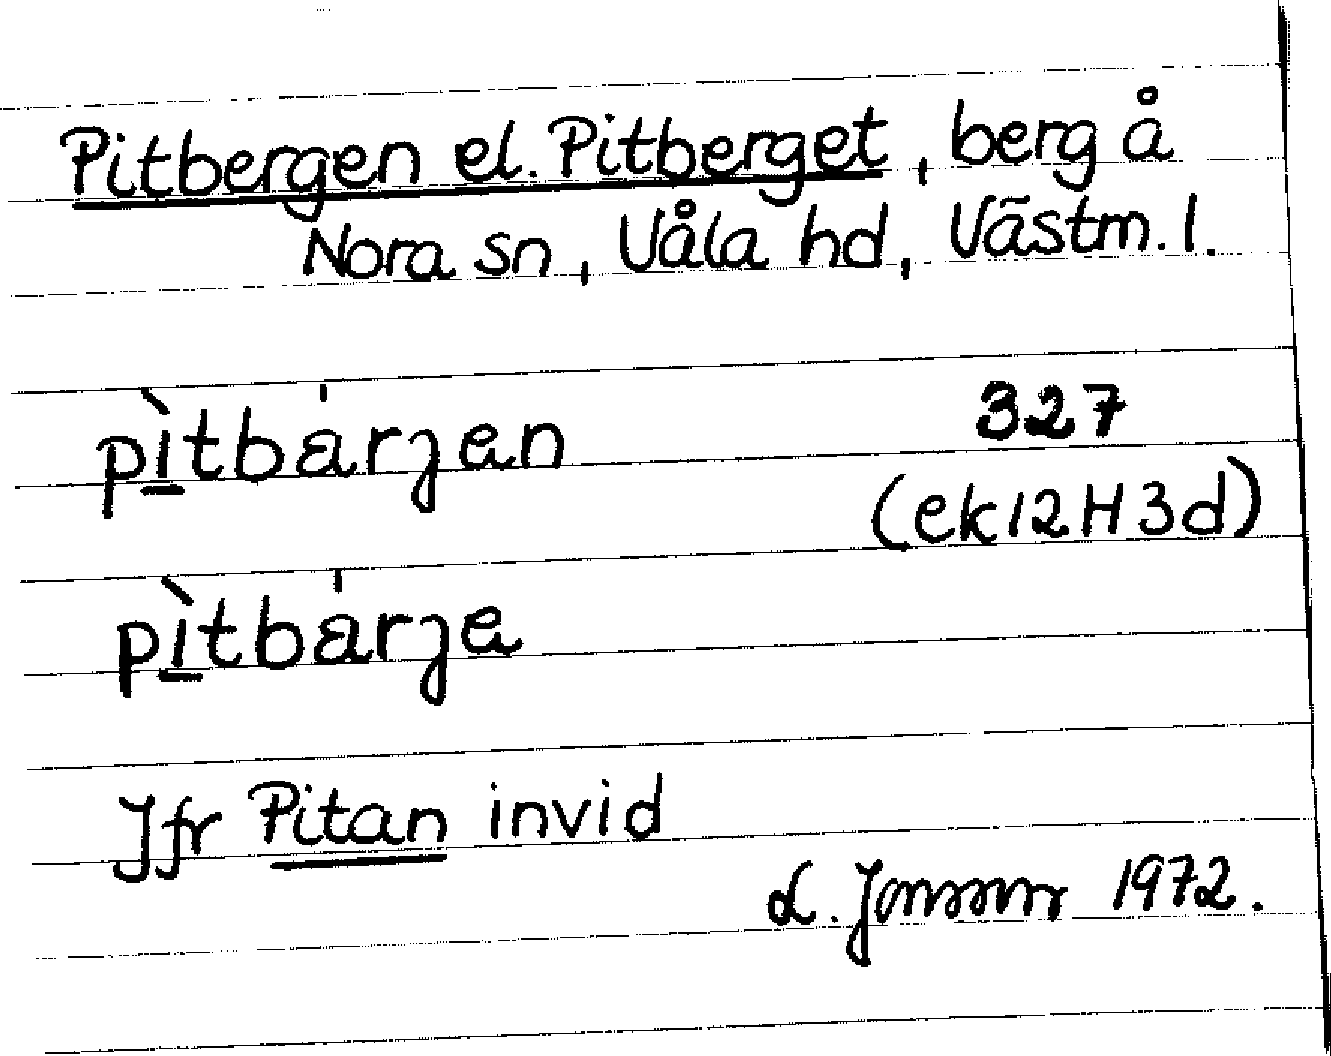 Pitbergen el. Pitberget, berg å
Nora sn, Våla hd, Västm. l.
pìtbárjen 327
(ek12H3d)
pìtbárje
Jfr Pitan invid
L. 1972.